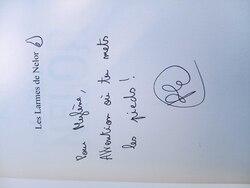 Les Larmes de Nefor
Pour Mylène,
Attention où tu mets
les pieds !